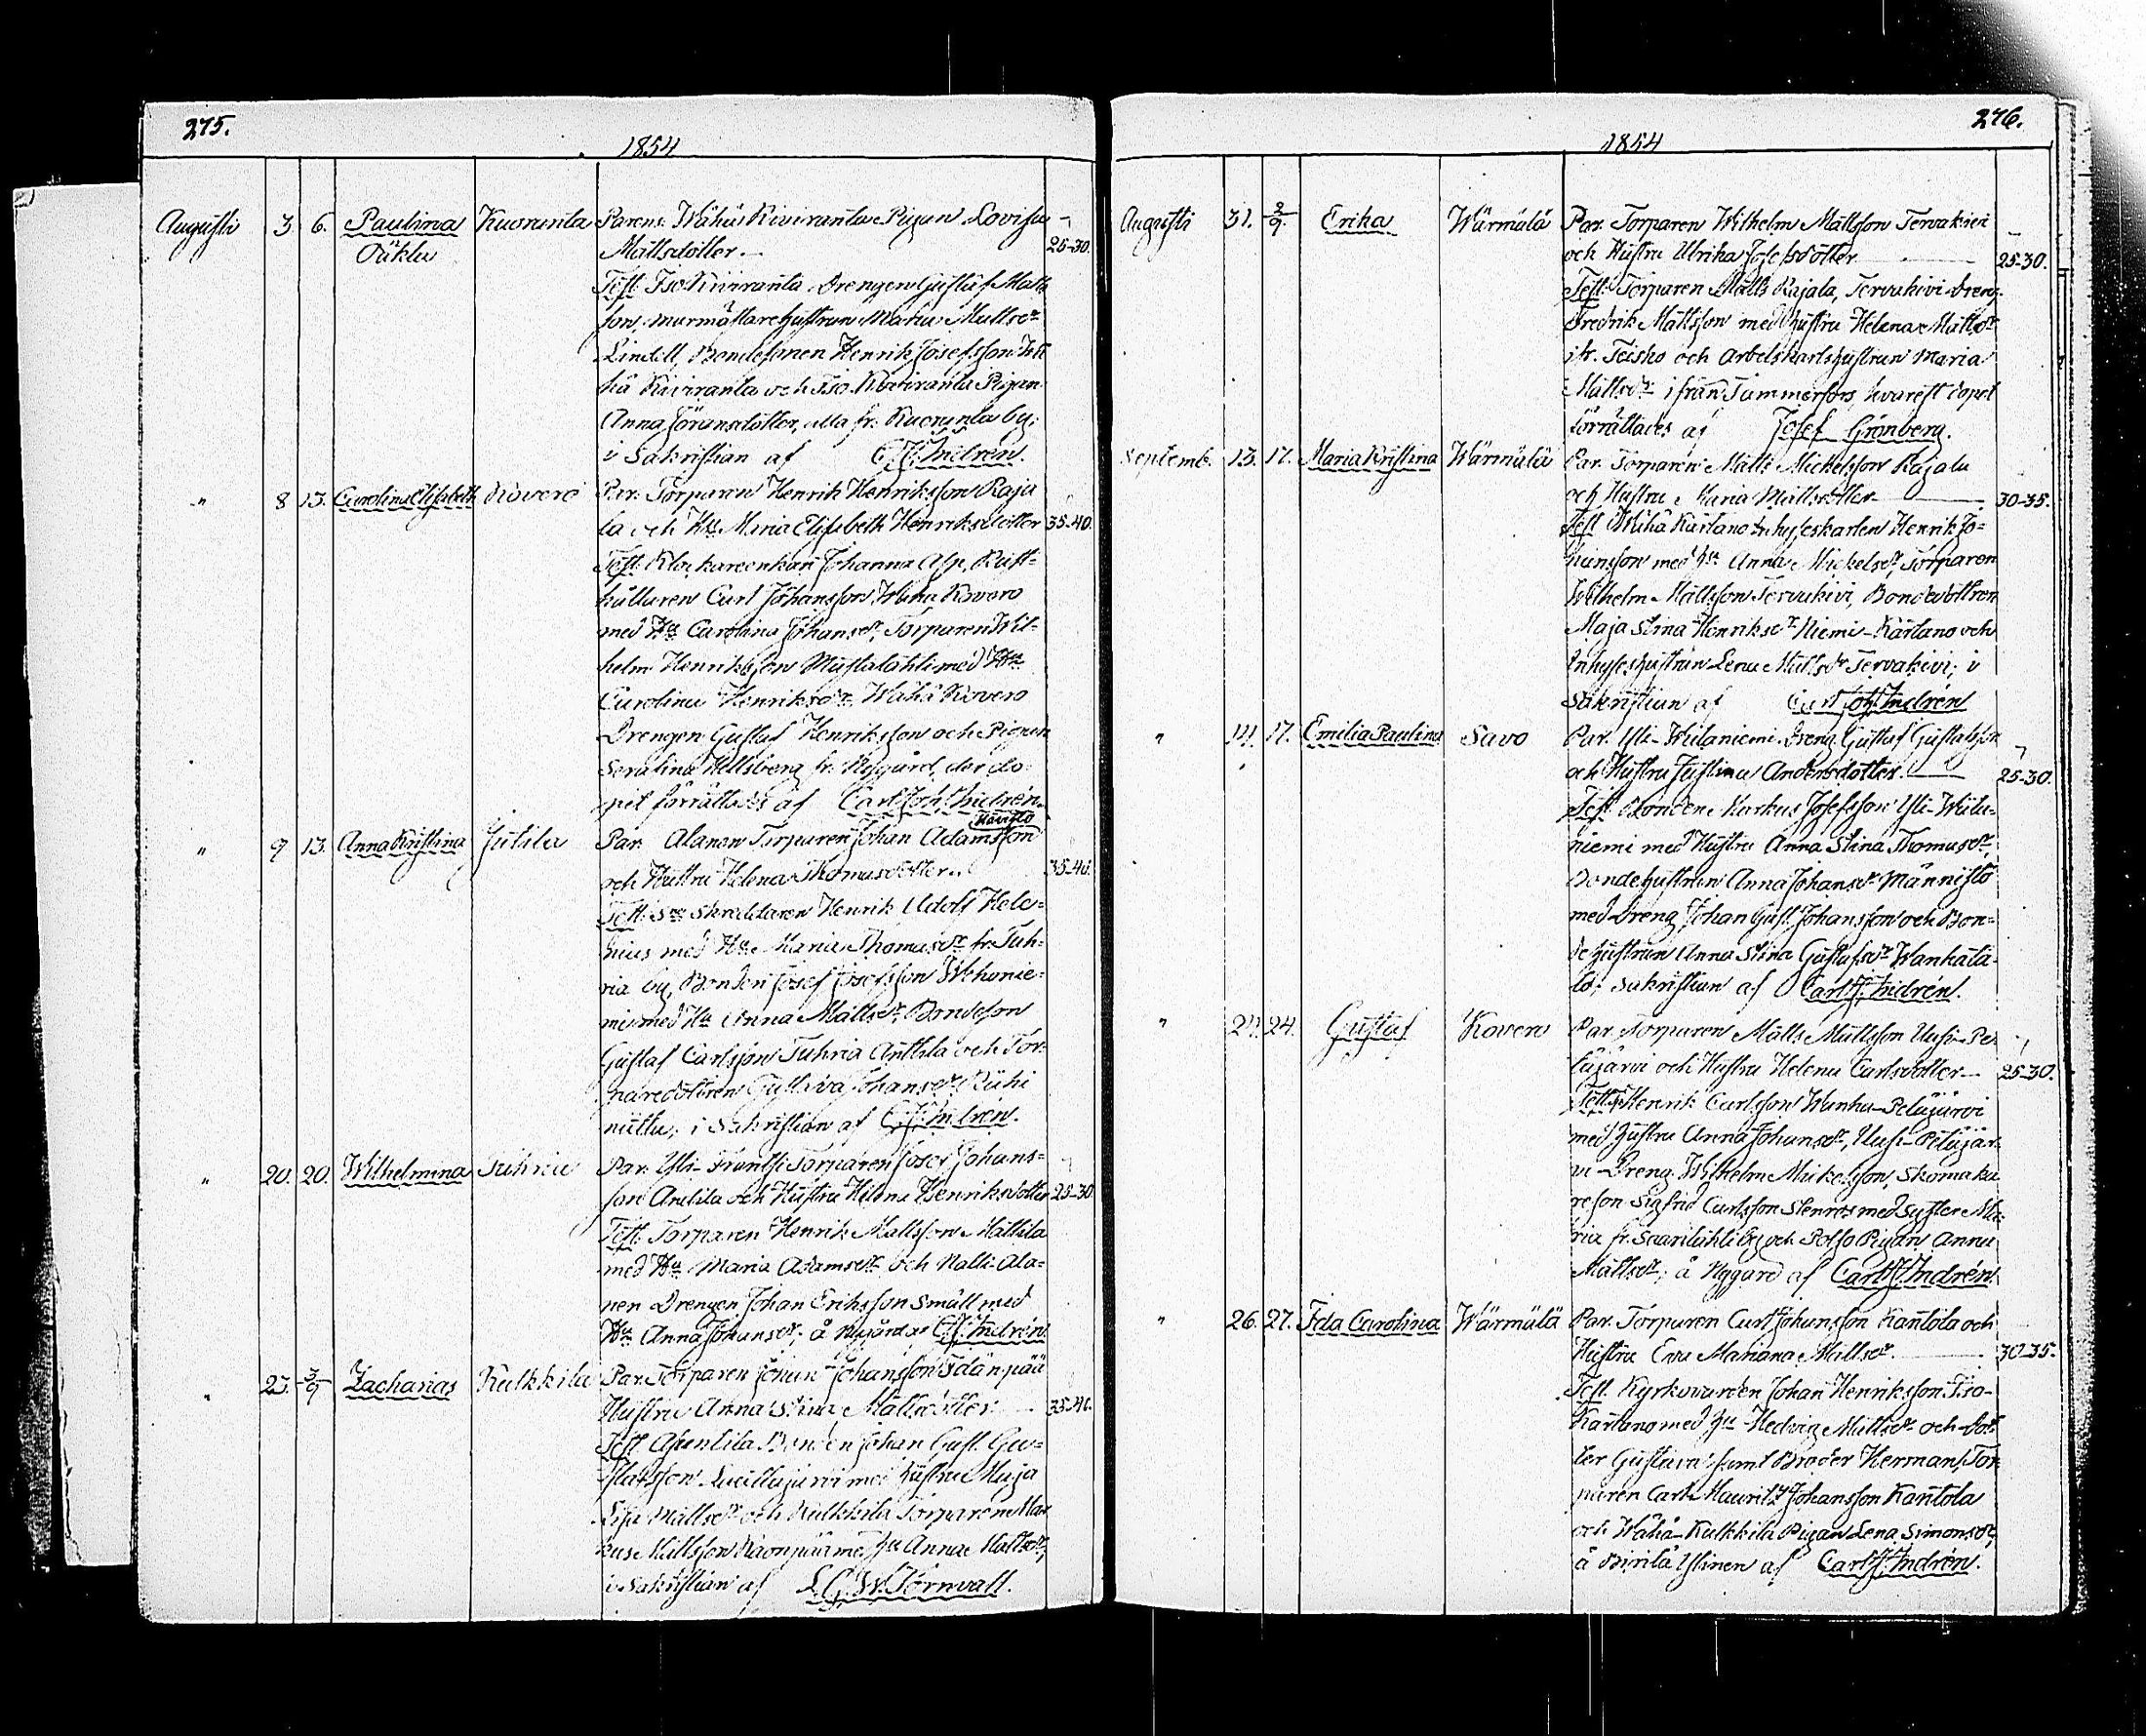 275.
1854
Augusti 3. 6. Paulina Kuorunta Parens Wähä Kiviranta Pigan Lovisa
Oäkta Mattsdotter. 25-30.
Test. Iso Kiviranta Drengen Gustaf Matts
son, murmästarehustrun Maria Mattsdr
Lindell, Bondesonen Henrik Josefsson Wä
hä Kiviranta och Iso Kiviranta Pigan
Anna Göransdotter, alla fr. Kuorunta by;
i Sakristian af C. J. Indrén.
" 8 13. Carolina Elisabeth Kovero Par. Torparen Henrik Henriksson Raja
la och Hu Maria Elisabeth Henriksdotter 35-40.
Test. Klockareenkan Johanna Asp, Rust-
hållaren Carl Johansson Waha Kovero
med Hu Carolina Johansdr, Torparen Wil-
helm Henriksson Mustalahti med Hu
Carolina Henriksdr, Wähä Kovero
Drengen Gustaf Henriksson och Pigan
Serafina Hellsberg fr. Nygård, der do-
pet förrättades af Carl Joh. Indrén.
" 9 13. Anna Kristina Jutila Par. Alanen Torparen Johan Adamsson Kavisto
och Hustru Helena Thomasdotter. 35-40.
Test. Skreddaren Henrik Adolf Hele-
nius med Hu Maria Thomasdr fr. Tuh-
ria by, Bonden Josef Josefsson Wehonie-
mi med Hu Anna Mattsdr, Bondeson
Gustaf Carlsson Tuhria Anttila och Tor-
paredottren Gustava Johansdr Riihi
niittu; i Sakristian af C. J. Indrén.
" 20. 20. Wilhelmina Tuhria Par. Yli-Frantsi Torparen Josef Johans-
son Anttila och Hustru Helena Henriksdotter 25-30
Test. Torparen Henrik Mattsson Mattila
med Hu Maria Adamsdr och Nalli-Ala-
nen Drengen Johan Eriksson Småll med
Hu Anna Johansdr; å Nygård af C. J. Indrén
" 23. 3/9 Zacharias Kulkkila Par. Torparen Johan Johansson Idänpää
Hustru Anna Stina Mattsdotter. 35-40.
Test. Bonden Johan Gust. Gu-
stafsson med hustru Maja
Lisa Mattsdr och Kulkkila Torparen Mar
kus Mattsson med hu Anna Mattsdr;
i Sakristian af L. G. W. Törnvall.
276.
1854
Augusti 31. 3/9. Erika Wärmälä Par. Torparen Wilhelm Mattsson Tervakivi
och Hustru Ulrika Josefsdotter 25-30.
Test. Torparen Matts Rajala, Tervakivi dreng.
Fredrik Mattsson med hustru Helena Mattsdr
ifr. Teisko och arbetskarlshustrun Maria
Mattsdr ifrån Tammerfors, hvarest dopet
förrättades af Josef Grönberg.
Septemb. 13. 17. Maria Kristina Wärmälä Par. Torparen Matts Mickelsson Rajala
och Hustru Maria Mattsdotter 30-35.
Test. Wähä Kartano Inhyseskarlen Henrik Jo-
hansson med hu Anna Mickelsdr, Torparen
Wilhelm Mattsson Tervakivi, Bondedottren
Maja Stina Henriksdr Niemi-Kartano och
Inhyseshustrun Lena Mattsdr Tervakivi; i
Sakristian af Carl Joh. Indrén
" 14. 17. Emilia Paulina Savo Par. Yli-Wiilaniemi Dreng. Gustaf Gustafsson
och Hustru Justina Andersdotter. 25-30.
Test. Bonden Markus Josefsson Yli-Wiila-
niemi med Hustru Anna Stina Thomasdr,
Bondehustrun Anna Johansdr Männistö
med Dreng Johan Gust. Johansson och Bon-
dehustrun Anna Stina Gustafsdr Wanhata-
lo; Sakristian af Carl J. Indrén.
" 24. Gustaf Kovero Par. Torparen Matts Mattsson Uusi-Pe
täjärvi och Hustru Helena Carlsdotter 25-30.
Test. Henrik Carlsson Wanha-Petäjärvi
med hustru Anna Johansdr, Uusi-Petäjär-
vi Dreng. Wilhelm Mickelsson, Skomaka
reson Sigfrid Carlsson Stenros med syster Ma-
ria fr. Saarilahti by och Polso Pigan Anna
Mattsdr; å Nygård af Carl J. Indrén
" 26. 27. Ida Carolina Wärmälä Par. Torparen Carl Johansson Kantola och
Hustru Eva Mariana Mattsdr. 30-35.
Test. Kyrkovärden Johan Henriksson Iso-
Kartano med hu Hedvig Mattsdr och Dot-
ter Gustava samt Broder Herman, Tor
paren Carl Mauritz Johansson Kantola
och Wähä-Kulkkila Pigan Lena Simonsdr;
å Ylinen af Carl J. Indrén.